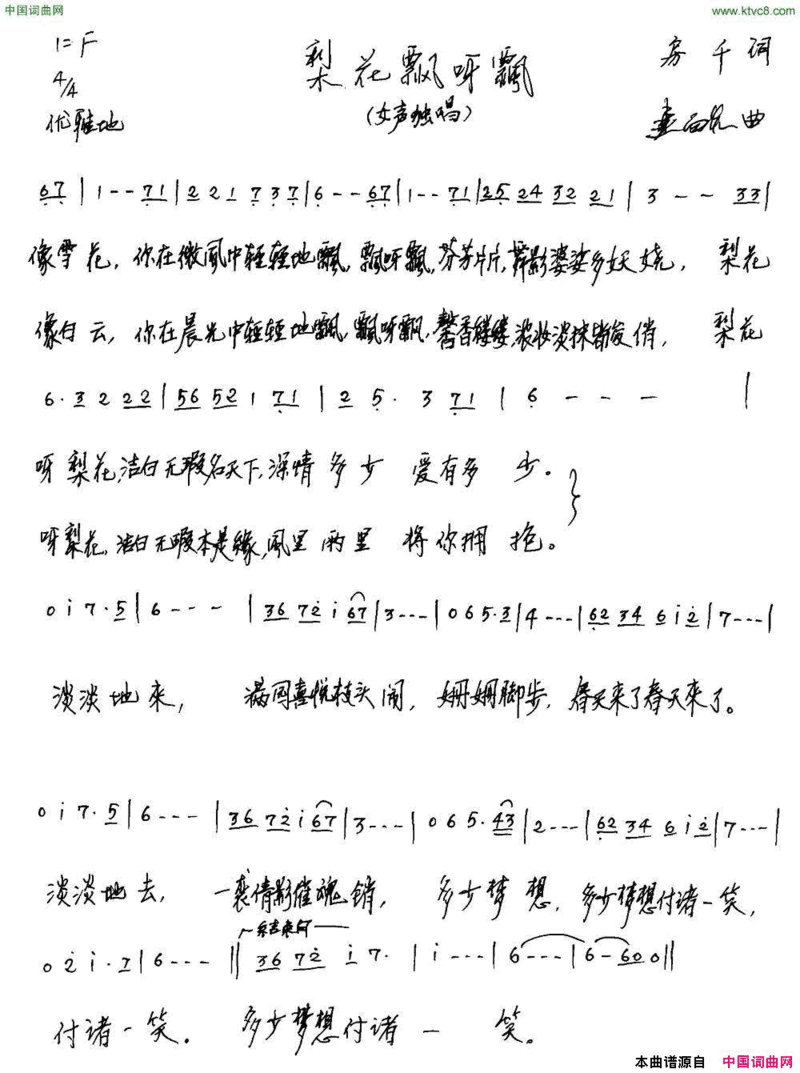 中国词曲网 www.ktvc8.com
1=F 梨花飘呀飘 房千词
4/4 (女声独唱) 曲
优雅地
67 | 1 - - 71 | 2 2 1 7 3 7 | 6 - - 67 | 1 - - 71 | 25 24 32 21 | 3 - - 33 |
像雪花，你在微风中轻轻地飘，飘呀飘，芬芳片片，舞影婆娑多妖娆， 梨花
像白云，你在晨光中轻轻地飘，飘呀飘，馨香缕缕，浓妆淡抹皆俊俏， 梨花
6 · 3 2 22 | 56 52 1 71 | 2 5 · 3 71 | 6 - - - |
呀梨花，洁白无瑕名天下，深情多少 爱有多 少。
呀梨花，洁白无瑕本是缘，风里雨里 将你拥 抱。
0 i 7 · 5 | 6 - - - | 36 72 i 67 | 3 - - - | 0 6 5 · 3 | 4 - - - | 62 34 6 i2 | 7 - - - |
淡淡地来， 满园喜悦枝头闹， 姗姗脚步，春天来了春天来了。
0 i 7 · 5 | 6 - - - | 36 72 i 67 | 3 - - - | 0 6 5 · 43 | 2 - - - | 62 34 6 i2 | 7 - - - |
淡淡地去， 一袭倩影催魂销， 多少梦想，多少梦想付诸一笑，
结束句
0 2 i · 7 | 6 - - - || 36 72 i 7 · | i - - - | 6 - - - | 6 - 60 0 ||
付诸一笑。 多少梦想付诸一 笑。
本曲谱源自 中国词曲网